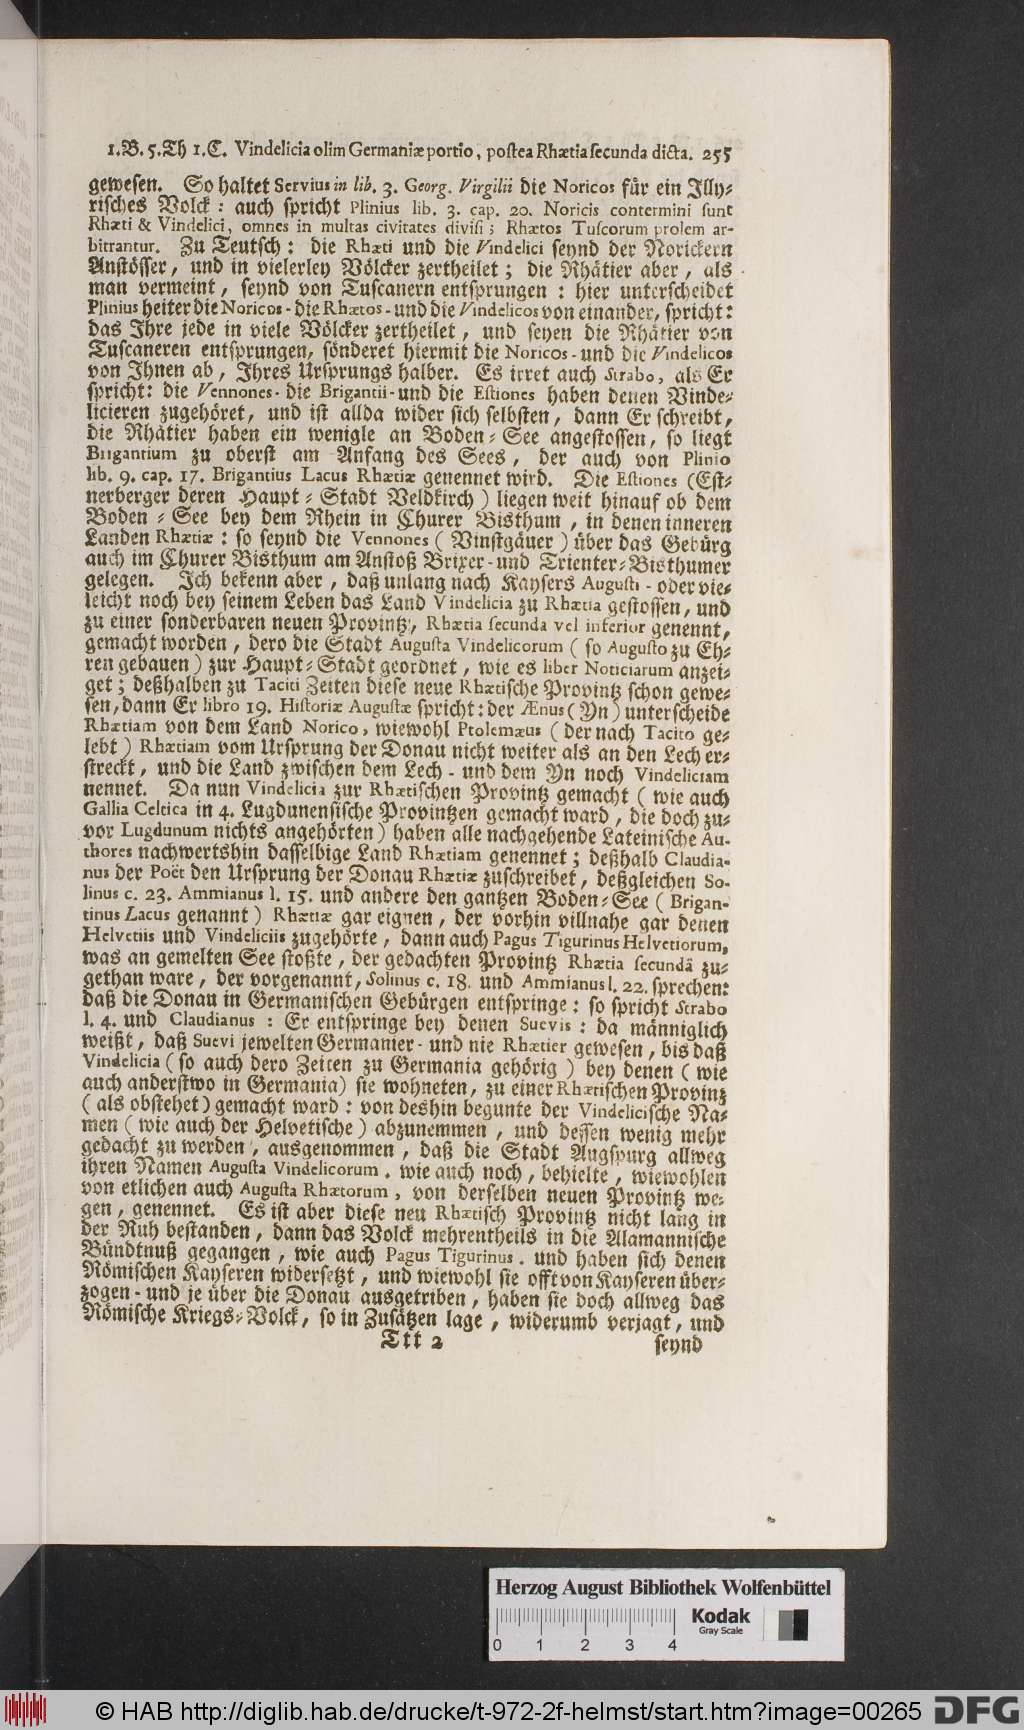 1.B. 5.Th 1.C. Vindelicia olim Germaniæ portio, postea Rhætia secunda dicta. 255
gewesen. So haltet Servius in lib. 3. Georg. Virgilii die Noricos für ein Illy-
risches Volck: auch spricht Plinius lib. 3. cap. 20. Noricis contermini sunt
Rhæti & Vindelici, omnes in multas civitates divisi; Rhætos Tuscorum prolem ar-
bitrantur. Zu Teutsch: die Rhæti und die Vindelici seynd der Norickern
Anstösser, und in vielerley Völcker zertheilet; die Rhätier aber, als
man vermeint, seynd von Tuscanern entsprungen: hier unterscheidet
Plinius heiter die Noricos- die Rhætos- und die Vindelicos von einander, spricht:
das Ihre jede in viele Völcker zertheilet, und seyen die Rhätier von
Tuscaneren entsprungen, sönderet hiermit die Noricos- und die Vindelicos
von Ihnen ab, Ihres Ursprungs halber. Es irret auch Strabo, als Er
spricht: die Vennones- die Brigantii- und die Estiones haben denen Vinde-
licieren zugehöret, und ist allda wider sich selbsten, dann Er schreibt,
die Rhätier haben ein wenigle an Boden-See angestossen, so liegt
Brigantium zu oberst am Anfang des Sees, der auch von Plinio
lib. 9. cap. 17. Brigantius Lacus Rhætiæ genennet wird. Die Estiones (Est-
nerberger deren Haupt-Stadt Veldkirch) liegen weit hinauf ob dem
Boden-See bey dem Rhein in Churer Bisthum, in denen inneren
Landen Rhætiæ: so seynd die Vennones (Vinstgäuer) über das Gebürg
auch im Churer Bisthum am Anstoß Brixer- und Trienter-Bisthumer
gelegen. Ich bekenn aber, daß unlang nach Kaysers Augusti- oder vie-
leicht noch bey seinem Leben das Land Vindelicia zu Rhætia gestossen, und
zu einer sonderbaren neuen Provintz, Rhætia secunda vel inferior genennt,
gemacht worden, dero die Stadt Augusta Vindelicorum (so Augusto zu Eh-
ren gebauen) zur Haupt-Stadt geordnet, wie es liber Noticiarum anzei-
get; deßhalben zu Taciti Zeiten diese neue Rhætische Provintz schon gewe-
sen, dann Er libro 19. Historiæ Augustæ spricht: der Ænus (Yn) unterscheide
Rhætiam von dem Land Norico, wiewohl Ptolemæus (der nach Tacito ge-
lebt) Rhætiam vom Ursprung der Donau nicht weiter als an den Lech er-
streckt, und die Land zwischen dem Lech- und dem Yn noch Vindeliciam
nennet. Da nun Vindelicia zur Rhætischen Provintz gemacht (wie auch
Gallia Celtica in 4. Lugdunensische Provintzen gemacht ward, die doch zu-
vor Lugdunum nichts angehörten) haben alle nachgehende Lateinische Au-
thores nachwertshin dasselbige Land Rhætiam genennet; deßhalb Claudia-
nus der Poët den Ursprung der Donau Rhætiæ zuschreibet, deßgleichen So-
linus c. 23. Ammianus l. 15. und andere den gantzen Boden-See (Brigan-
tinus Lacus genannt) Rhætiæ gar eignen, der vorhin villnahe gar denen
Helvetiis und Vindeliciis zugehörte, dann auch Pagus Tigurinus Helvetiorum,
was an gemelten See stoßte, der gedachten Provintz Rhætia secundâ zu-
gethan ware, der vorgenannt, Solinus c. 18. und Ammianus l. 22. sprechen:
daß die Donau in Germanischen Gebürgen entspringe: so spricht Strabo
l. 4. und Claudianus: Er entspringe bey denen Suevis: da männiglich
weißt, daß Suevi jewelten Germanier- und nie Rhætier gewesen, bis daß
Vindelicia (so auch dero Zeiten zu Germania gehörig) bey denen (wie
auch anderstwo in Germania) sie wohneten, zu einer Rhætischen Provinz
(als obstehet) gemacht ward: von deshin begunte der Vindelicische Na-
men (wie auch der Helvetische) abzunemmen, und dessen wenig mehr
gedacht zu werden, ausgenommen, daß die Stadt Augspurg allweg
ihren Namen Augusta Vindelicorum, wie auch noch, behielte, wiewohlen
von etlichen auch Augusta Rhætorum, von derselben neuen Provintz we-
gen, genennet. Es ist aber diese neu Rhætisch Provintz nicht lang in
der Ruh bestanden, dann das Volck mehrentheils in die Alamannische
Bündtnuß gegangen, wie auch Pagus Tigurinus, und haben sich denen
Römischen Kayseren widersetzt, und wiewohl sie offt von Kayseren über-
zogen- und je über die Donau ausgetriben, haben sie doch allweg das
Römische Kriegs-Volck, so in Zusätzen lage, widerumb verjagt, und
Ttt 2 seynd
Herzog August Bibliothek Wolfenbüttel
Kodak
Gray Scale
0 1 2 3 4
© HAB http://diglib.hab.de/drucke/t-972-2f-helmst/start.htm?image=00265 DFG